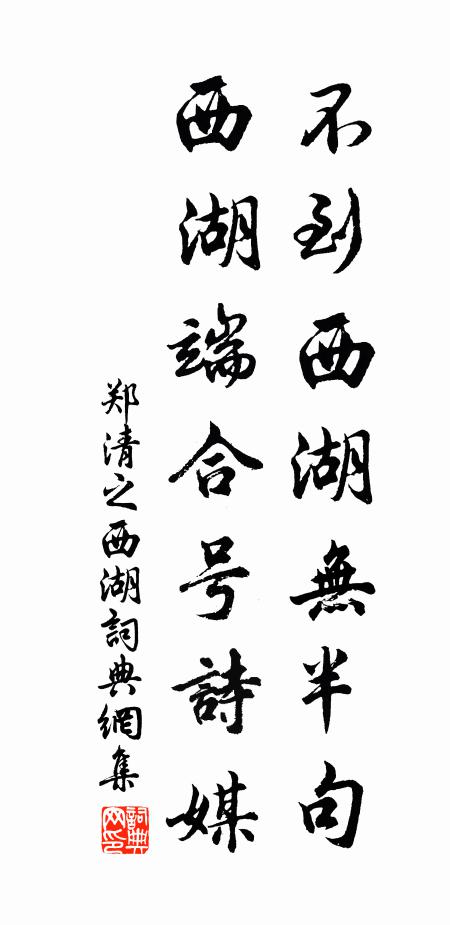 不到西湖無半句
西湖端合号詩媒
郑清之西湖詞典網集
詞典网印